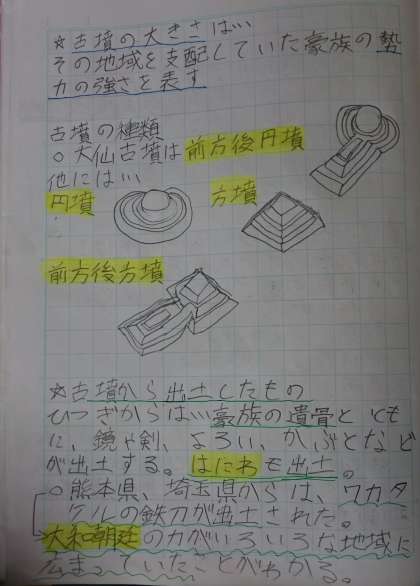 ☆古墳の大きさは…
その地域を支配していた豪族の勢
力の強さを表す
古墳の種類
○大仙古墳は前方後円墳
他には…
円墳
方墳
前方後方墳
☆古墳から出土したもの
ひつぎからは…豪族の遺骨ととも
に、鏡や剣、よろい、かぶとなど
が出土する。はにわも出土。
○熊本県、埼玉県からは、ワカタ
ケルの鉄刀が出土された。
大和朝廷の力がいろいろな地域に
広まっていたことがわかる。